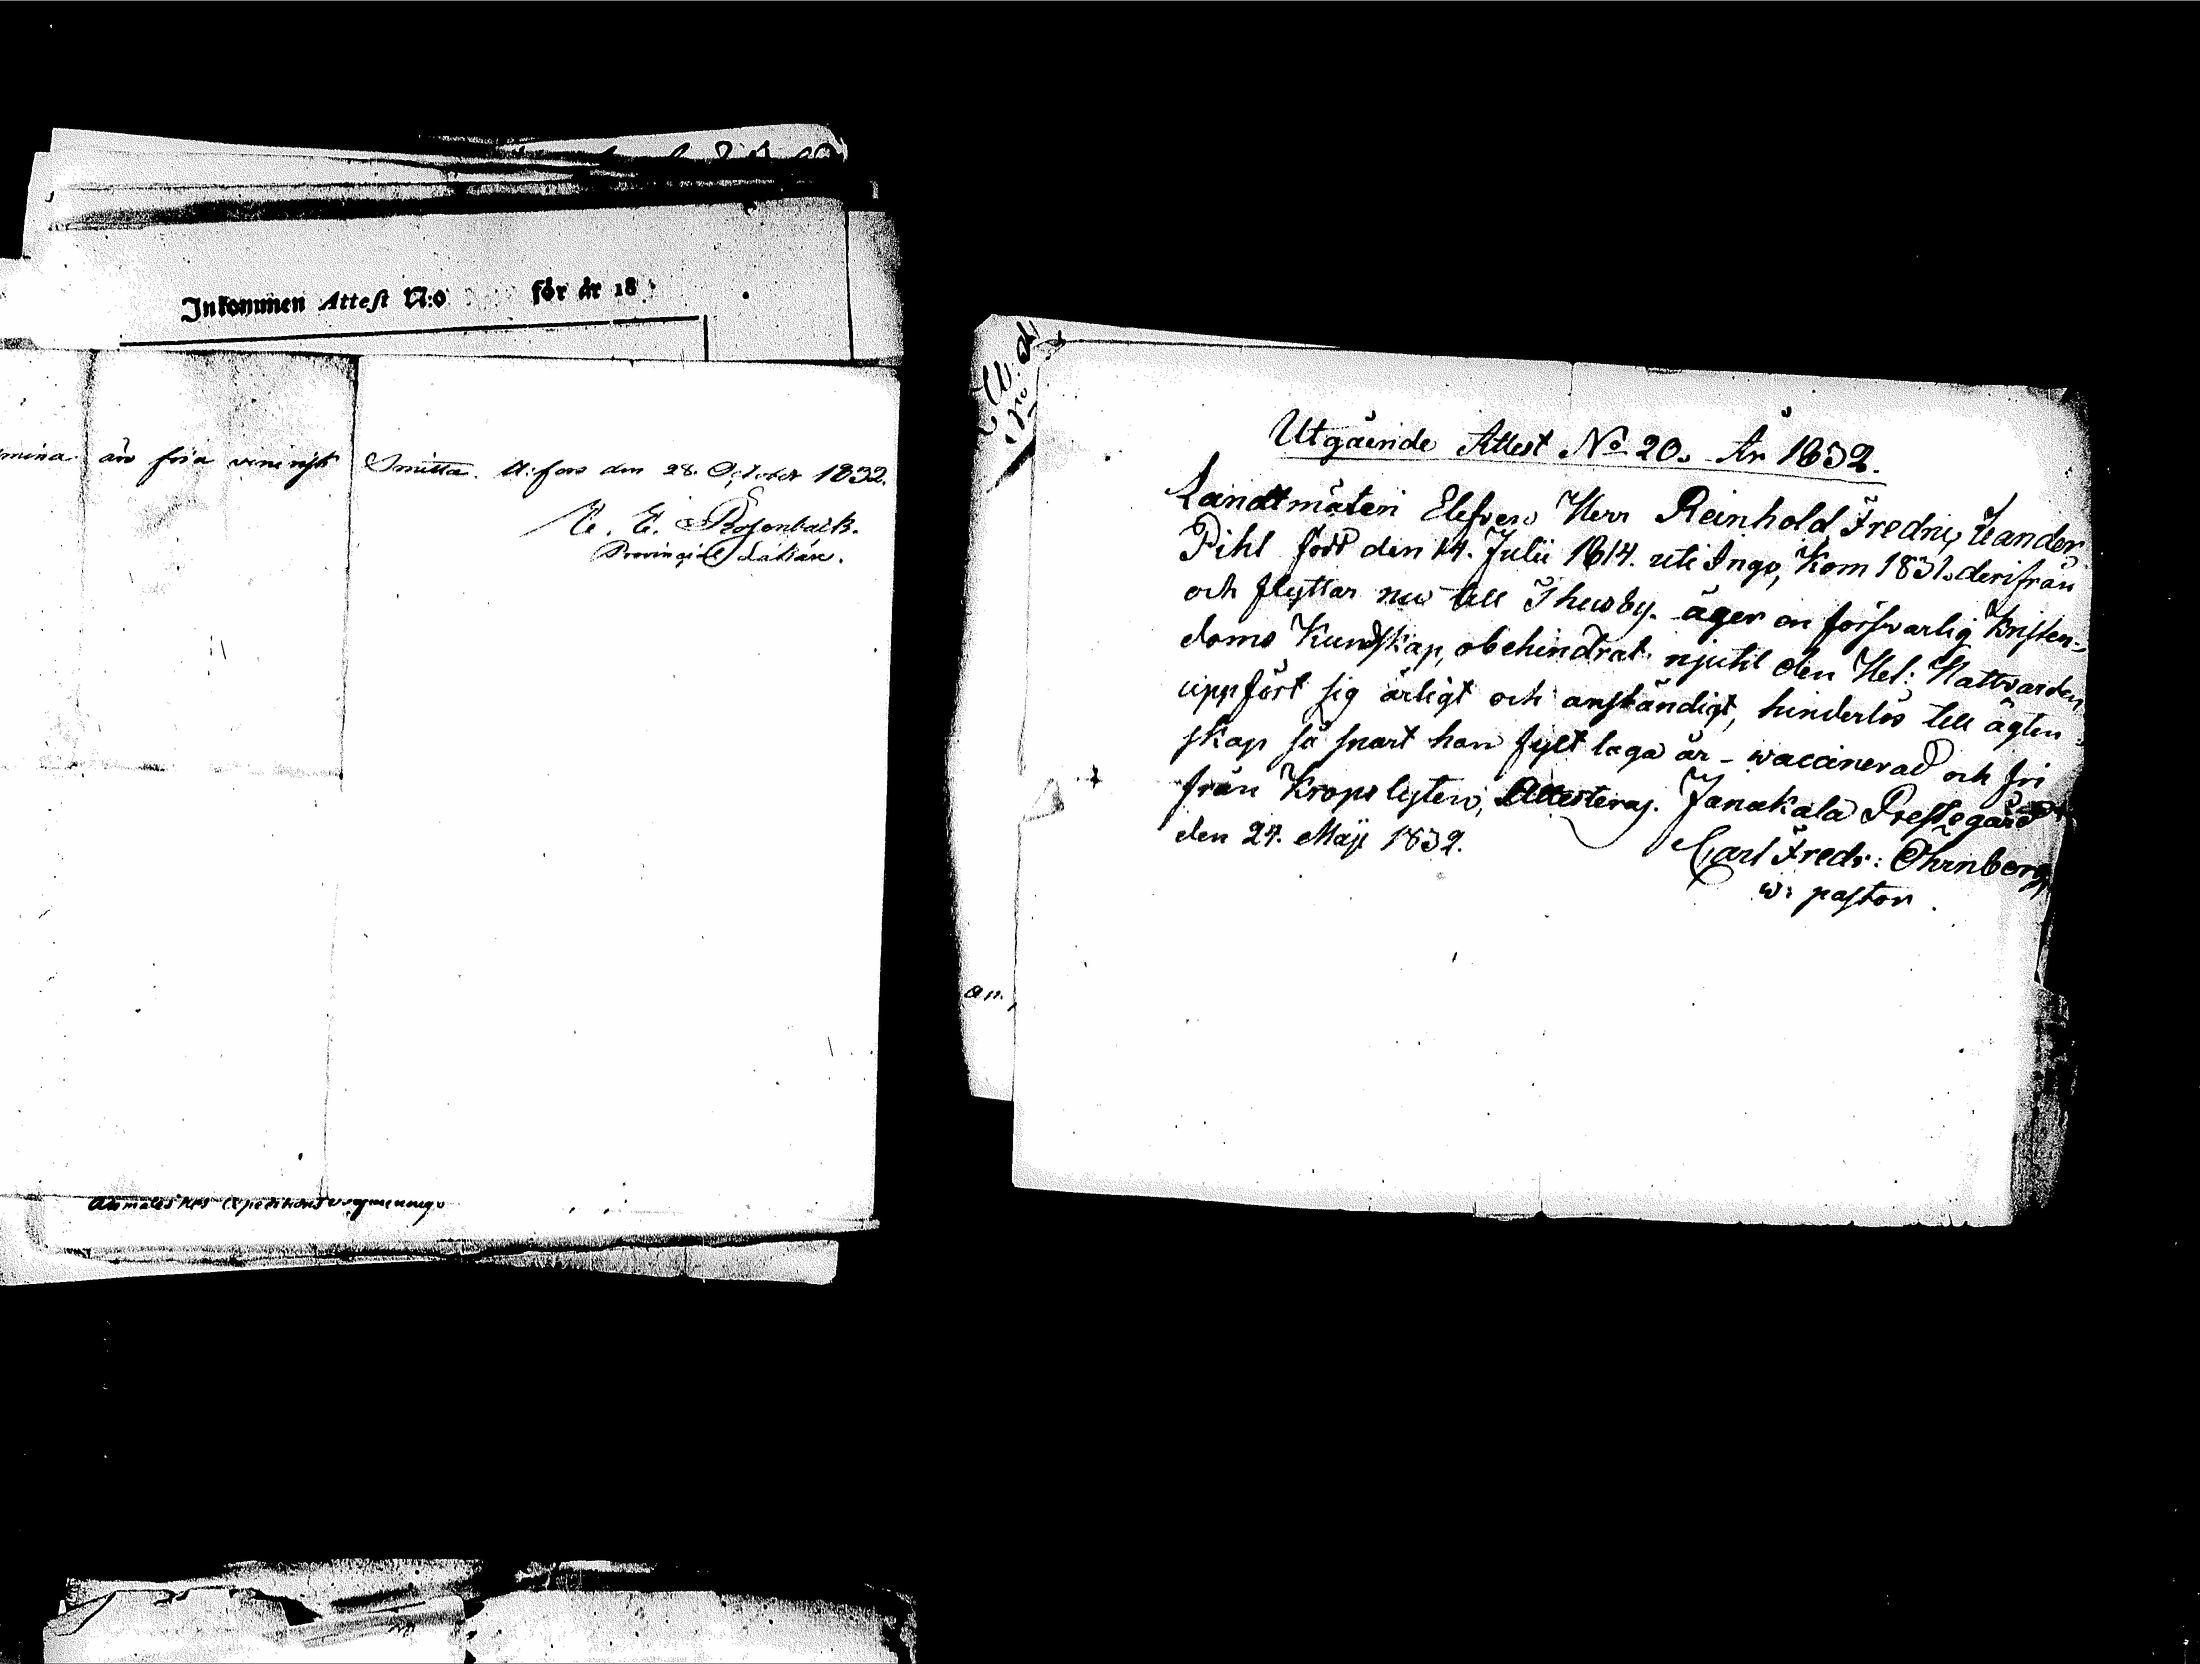 Inkommen Attest N:o för år 18
mina äro fria venerisk Smitta. H:fors den 28. October 1832.
Rosenback.
Provincial Läkare.
Anmäles hos Expeditions
Utgående Attest No 20. År 1832.
Landtmäteri Elefven Herr Reinhold Fredric Leander
Pihl född den 14. Julii 1814. uti Ingo, Kom 1831. derifrån
och flyttar nu till Thusby. äger en försvarlig Kristen-
doms Kundskap, obehindrat njutit den Hel: Nattvarden
uppfört sig ärligt och anständigt, hinderlös till ägten-
skap så snart han fylt laga år - waccinerad och fri
från Kropslyten, Attesteras. Janakala Prestegård
den 24. Maji 1832.
Carl Fredr: Öhrnberg
w: pastor.
an.